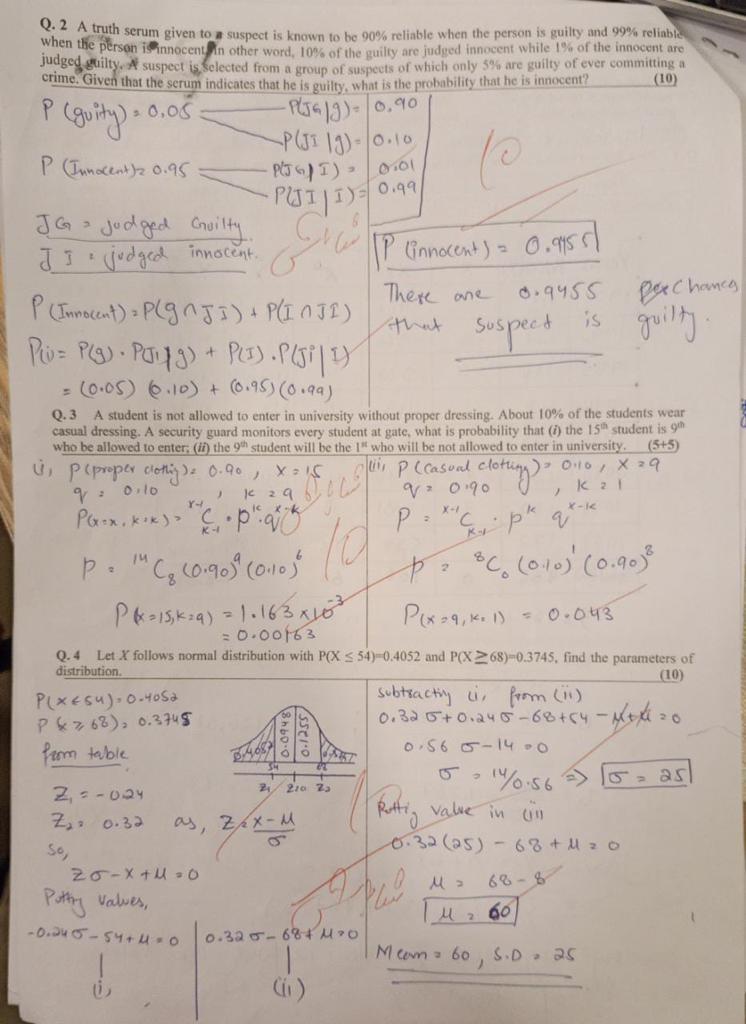 Q. 2 A truth serum given to a suspect is known to be 90% reliable when the person is guilty and 99% reliable
when the person is innocent. In other word, 10% of the guilty are judged innocent while 1% of the innocent are
judged guilty. A suspect is selected from a group of suspects of which only 5% are guilty of ever committing a
crime. Given that the serum indicates that he is guilty, what is the probability that he is innocent? (10)
P (guity) = 0.05
P(JG|g) = 0.90
P(JI|g) = 0.10
P (Innocent) = 0.95
P(JG|I) = 0.01
P(JI|I) = 0.99
10
JG = judged Guilty
JI = judged innocent.
P (innocent) = 0.9455
There are 0.9455 chances
that suspect is guilty.
P(Innocent) = P(g∩JI) + P(I∩JI)
P(i) = P(g).P(JI|g) + P(I).P(JI|I)
= (0.05)(0.10) + (0.95)(0.99)
Q. 3 A student is not allowed to enter in university without proper dressing. About 10% of the students wear
casual dressing. A security guard monitors every student at gate, what is probability that (i) the 15th student is 9th
who be allowed to enter; (ii) the 9th student will be the 1st who will not be allowed to enter in university. (5+5)
i, P(proper clothig) = 0.90, x = 15
q = 0.10, k = 9
P(x=x, k=k) = x-1 C k-1 . p^k . q^x-k
P = 14 C 8 (0.90)^9 (0.10)^6
P(x=15, k=9) = 1.163 x 10^-3
= 0.00163
10
ii, P(casual clotting) = 0.10, x = 9
q = 0.90, k = 1
P = x-1 C k-1 . p^k q^x-k
P = 8 C 0 (0.10)^1 (0.90)^8
P(x=9, k=1) = 0.043
Q. 4 Let X follows normal distribution with P(X ≤ 54)=0.4052 and P(X ≥ 68)=0.3745, find the parameters of
distribution. (10)
P(x≤54) = 0.4052
P(x≥68) = 0.3745
from table
Z1 = -0.24
Z2 = 0.32 as, Z = x-μ/σ
So,
Zσ-x+μ=0
Putting values,
-0.24σ-54+μ=0
(i)
0.32σ-68+μ=0
(ii)
0.4052
0.0948
0.1255
54
68
Z1 Z=0 Z2
10
subtracting (i) from (ii)
0.32σ+0.24σ-68+54-μ+μ=0
0.56σ-14=0
σ = 14/0.56 => σ = 25
Puttig value in (ii)
0.32(25)-68+μ=0
μ = 68-8
μ = 60
Mean = 60, S.D = 25